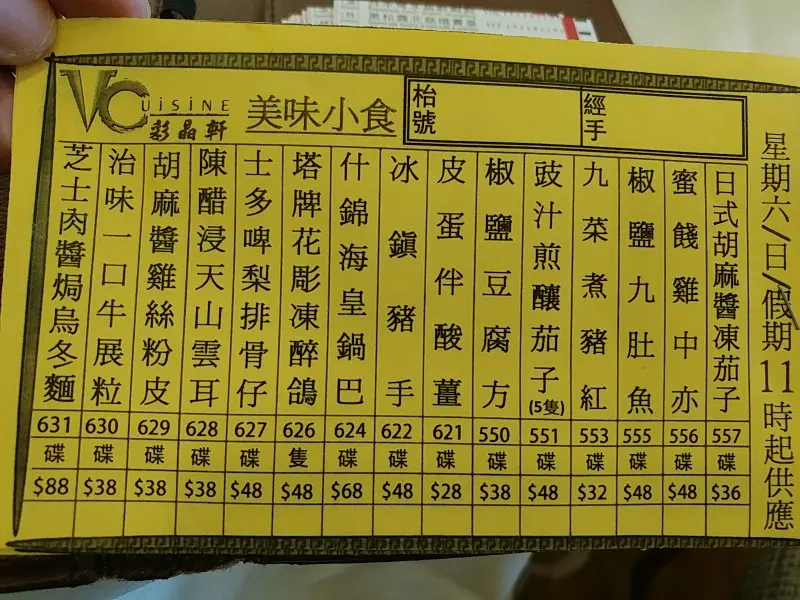 VCUiSiNE
彩晶軒
美味小食
枱號
經手
星期六/日/假期11時起供應
日式胡麻醬凍茄子
557
碟
$36
蜜餞雞中亦
556
碟
$48
椒鹽九肚魚
555
碟
$48
九菜煮豬紅
553
碟
$32
豉汁煎釀茄子(5隻)
551
碟
$48
椒鹽豆腐方
550
碟
$38
皮蛋伴酸薑
621
碟
$28
冰鎮豬手
622
碟
$48
什錦海皇鍋巴
624
碟
$68
塔牌花彫凍醉鴿
626
隻
$48
士多啤梨排骨仔
627
碟
$48
陳醋浸天山雲耳
628
碟
$38
胡麻醬雞絲粉皮
629
碟
$38
治味一口牛展粒
630
碟
$38
芝士肉醬焗烏冬麵
631
碟
$88